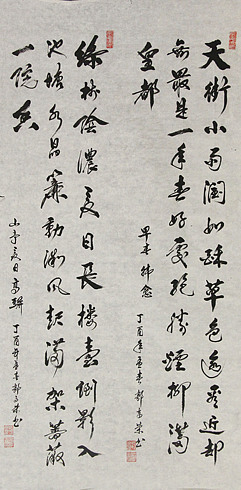 天街小雨润如酥草色遥看近却
无最是一年春好处绝胜烟柳满
皇都
早春 韩愈
丁酉年
绿树阴浓夏日长楼台倒影入
池塘水晶帘动微风起满架蔷薇
一院香
山亭夏日 高骈
丁酉年